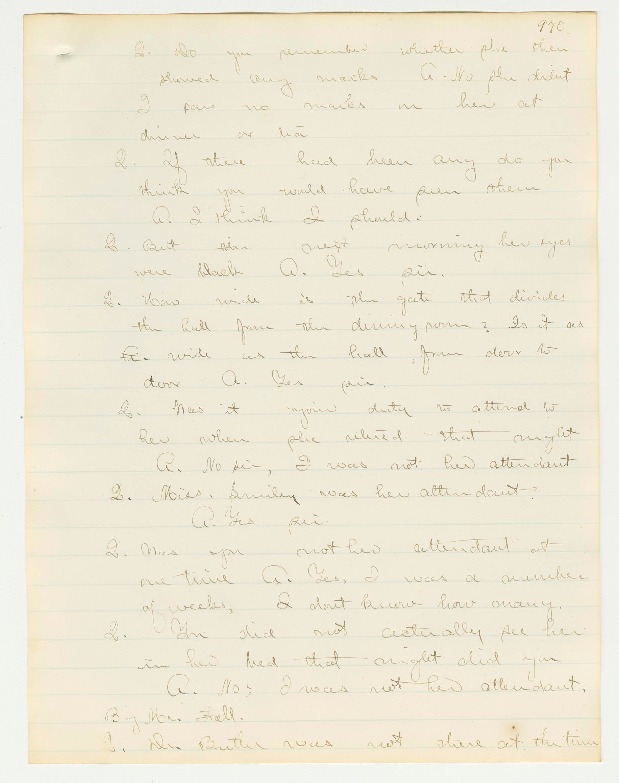 970
Q. Do you remember whether she then
showed any marks A. No she didnt
I saw no marks on her at
dinner or tea
Q. If there had been any do you
think you would have seen them
A. I think I should.
Q. But the next morning her eyes
were black A. Yes sir.
Q. How wide is the gate that divides
the hall from the dining room? Is it as
wide as the hall, from door to
door A. Yes sir.
Q. Was it your duty to attend to
her when she retired that night
A. No sir, I was not her attendant
Q. Miss. Smiley was her attendant?
A. Yes sir.
Q. Was you not her attendant at
one time A. Yes, I was a number
of weeks, I dont know how many.
Q. You did not actually see her
in her bed that night did you
A. No; I was not her attendant.
By Mr. Hall.
Q. Dr. Butler was not there at the time